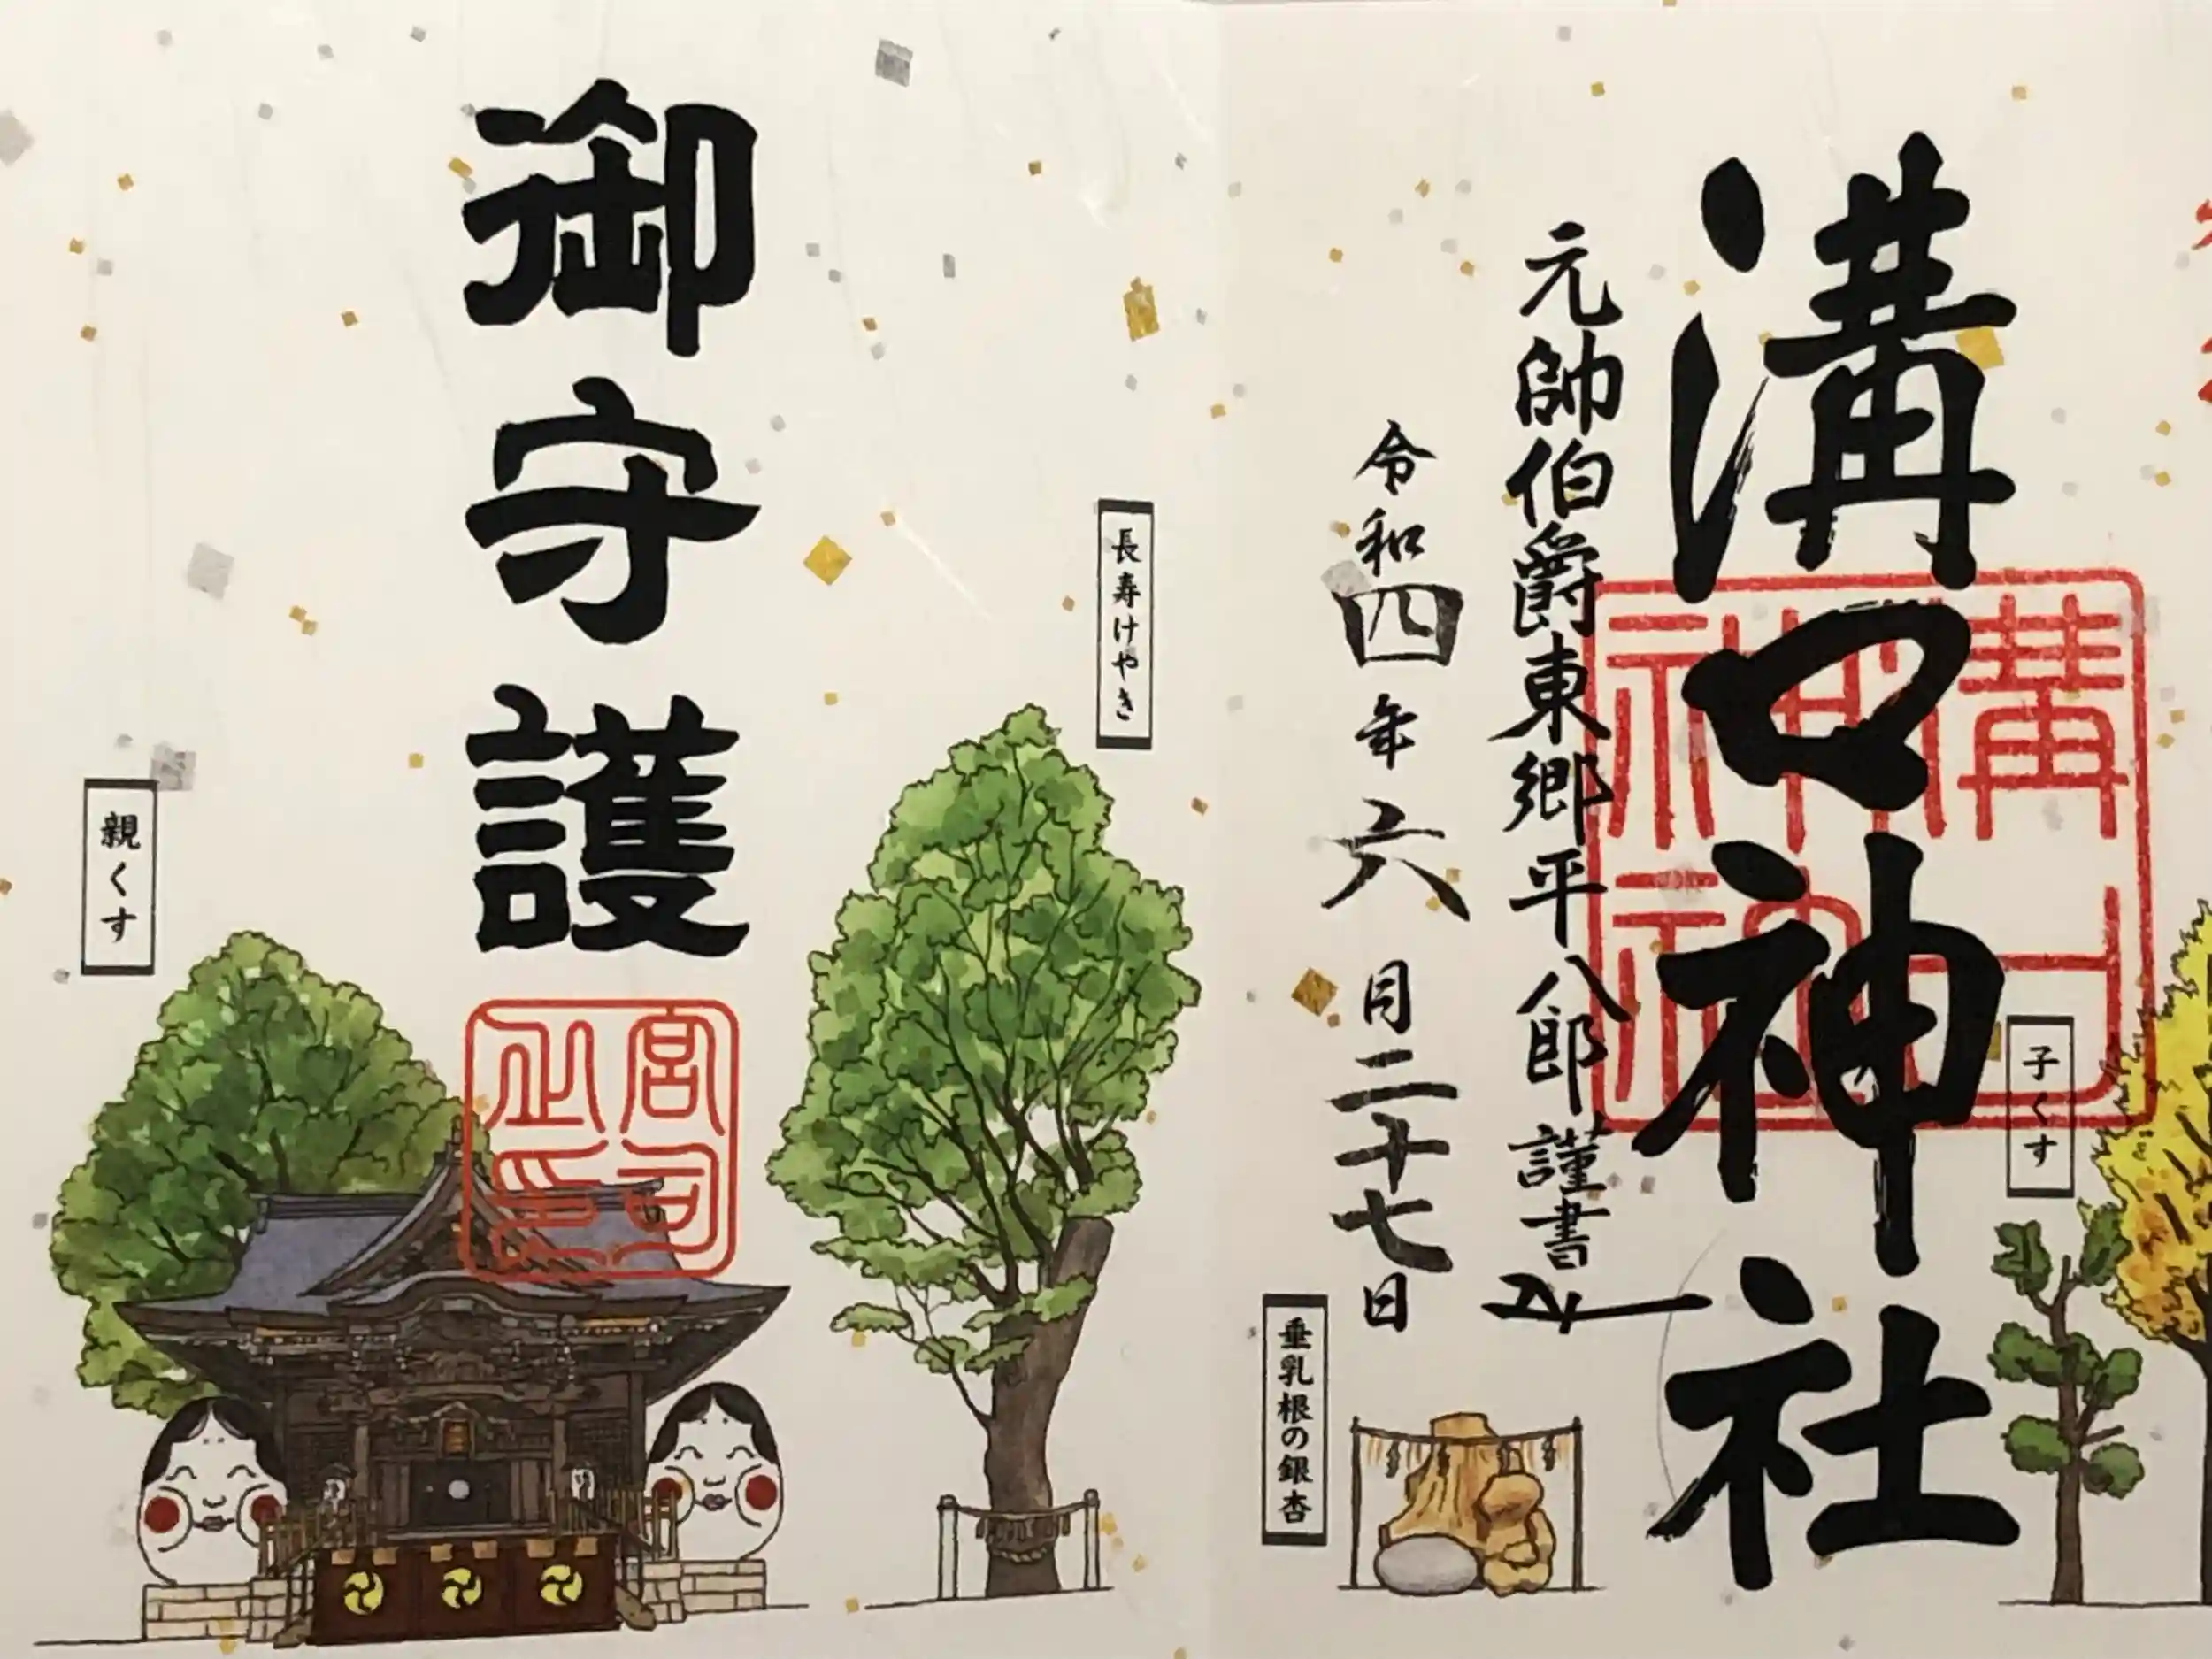 溝口神社
溝口神社
元帥伯爵東郷平八郎謹書
令和四年六月二十七日
子くす
垂乳根の銀杏
長寿けやき
御守護
宮司之印
親くす